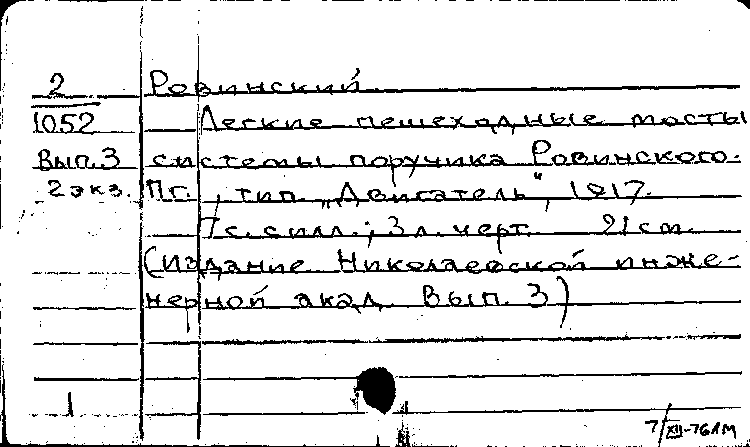 2 Ровинский
1052 Легкие пешеходные мосты
Вып.3 системы поручика Ровинского.
2 экз. Пг., тип. „Двигатель", 1917.
7 с. с илл.; 3 л. черт. 21 см.
(Издание Николаевской инже-
нерной акад. Вып. 3)
1
7/XII-76